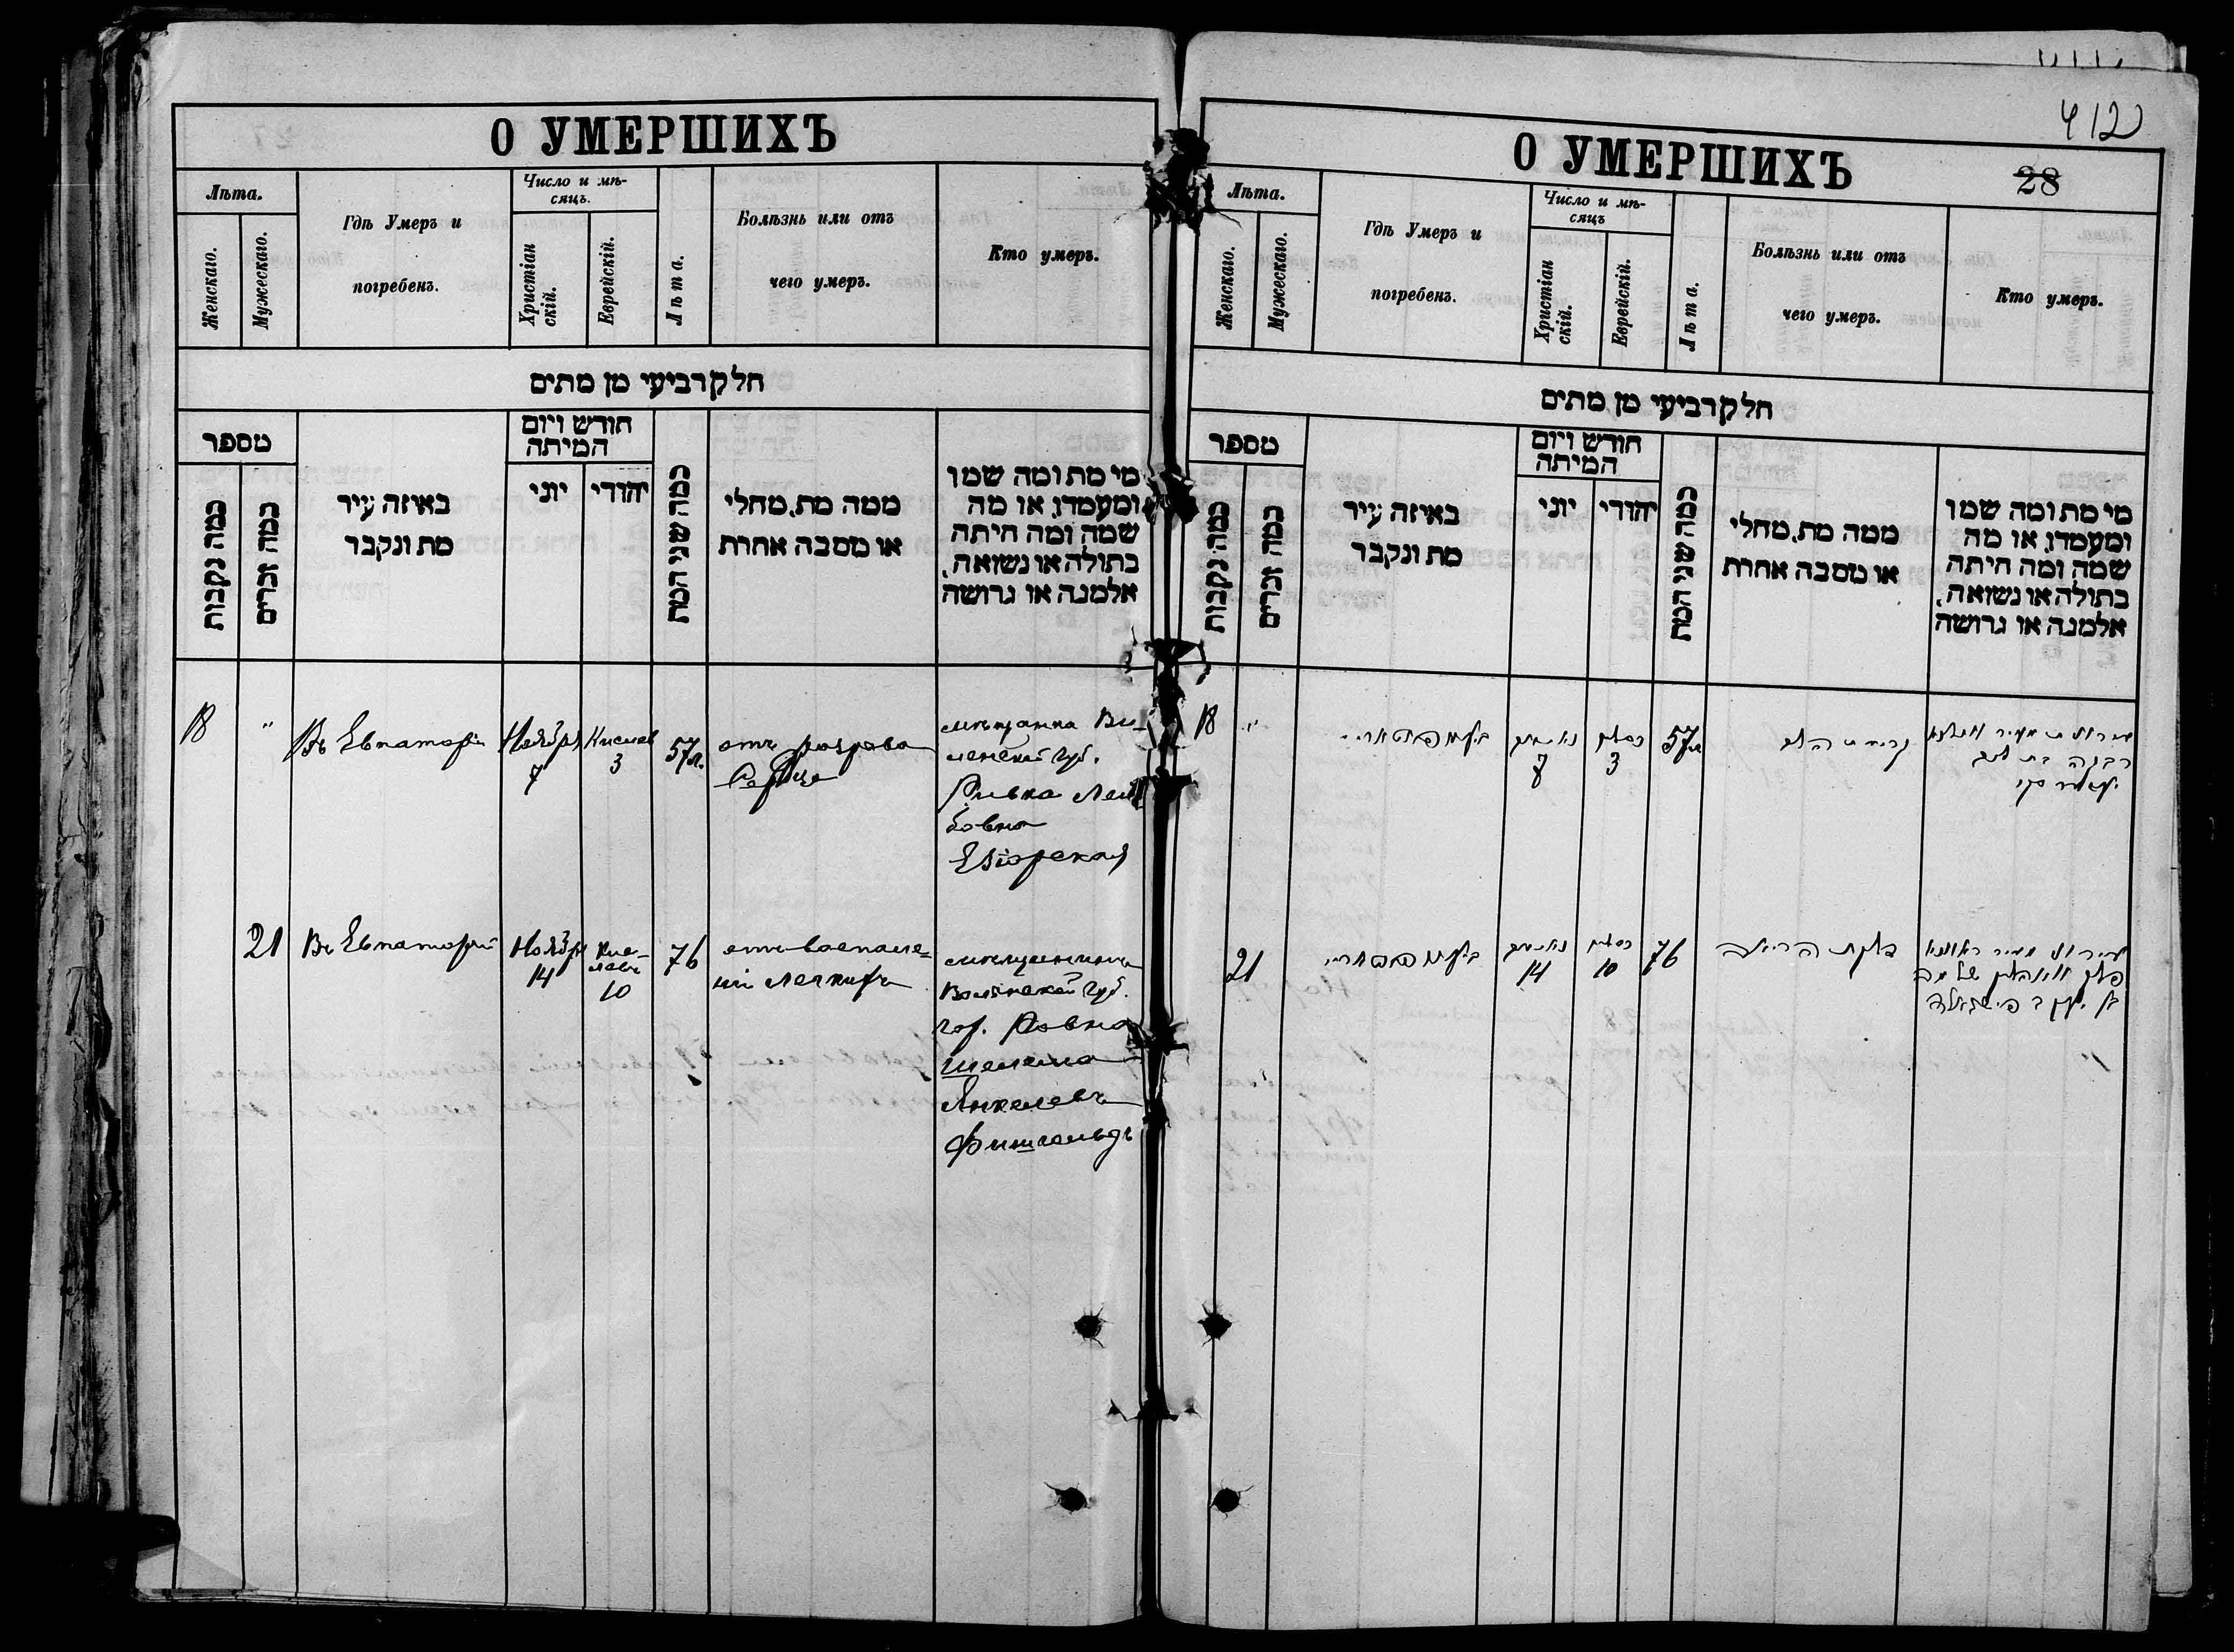 О УМЕРШИХЪ
Лѣта.
Женскаго.
Мужескаго.
Гдѣ Умеръ и
погребенъ.
Число и мѣ-
сяцъ.
Христіан
скій.
Еврейскій.
Лѣта.
Болѣзнь или отъ
чего умеръ.
Кто умеръ.
חלק רביעי מן מתים
מספר
כמה נקבות
כמה זכרים
באיזה עיר
מת ונקבר
חודש ויום
המיתה
יוני
יהודי
כמה שני המת
ממה מת, מחלי
או מסבה אחרת
מי מת ומה שמו
ומעמדו, או מה
שמה ומה חיתה
בתולה או נשואה,
אלמנה או גרושה
18
"
Въ Евпаторіи
Ноября
7
Кислев
3
57 л.
отъ порока
Сердца
мѣщанка Ви-
ленской губ.
Ривка Лей
бовна
Езіорская
21
Въ Евпаторіи
Ноября
14
Кис-
левъ
10
76
отъ воспале-
нія легкихъ
мѣщанинъ
Волынской губ.
гор. Ровно
Шелема
Янкелевъ
Фишгольдъ
412
О УМЕРШИХЪ
28
Лѣта.
Женскаго.
Мужескаго.
Гдѣ Умеръ и
погребенъ.
Число и мѣ-
сяцъ
Христіан
скій.
Еврейскій.
Лѣта.
Болѣзнь или отъ
чего умеръ.
Кто умеръ.
חלק רביעי מן מתים
מספר
כמה נקבות
כמה זכרים
באיזה עיר
מת ונקבר
חודש ויום
המיתה
יוני
יהודי
כמה שני המת
ממה מת, מחלי
או מסבה אחרת
מי מת ומה שמו
ומעמדו, או מה
שמה ומה חיתה
בתולה או נשואה,
אלמנה או גרושה
18
"
7
כסלו
3
57 л
הלב
רבקה בת ליב
21
14
כסלו
10
76
דלקת הריאה
שלמה
בן יעקב פישגאלד